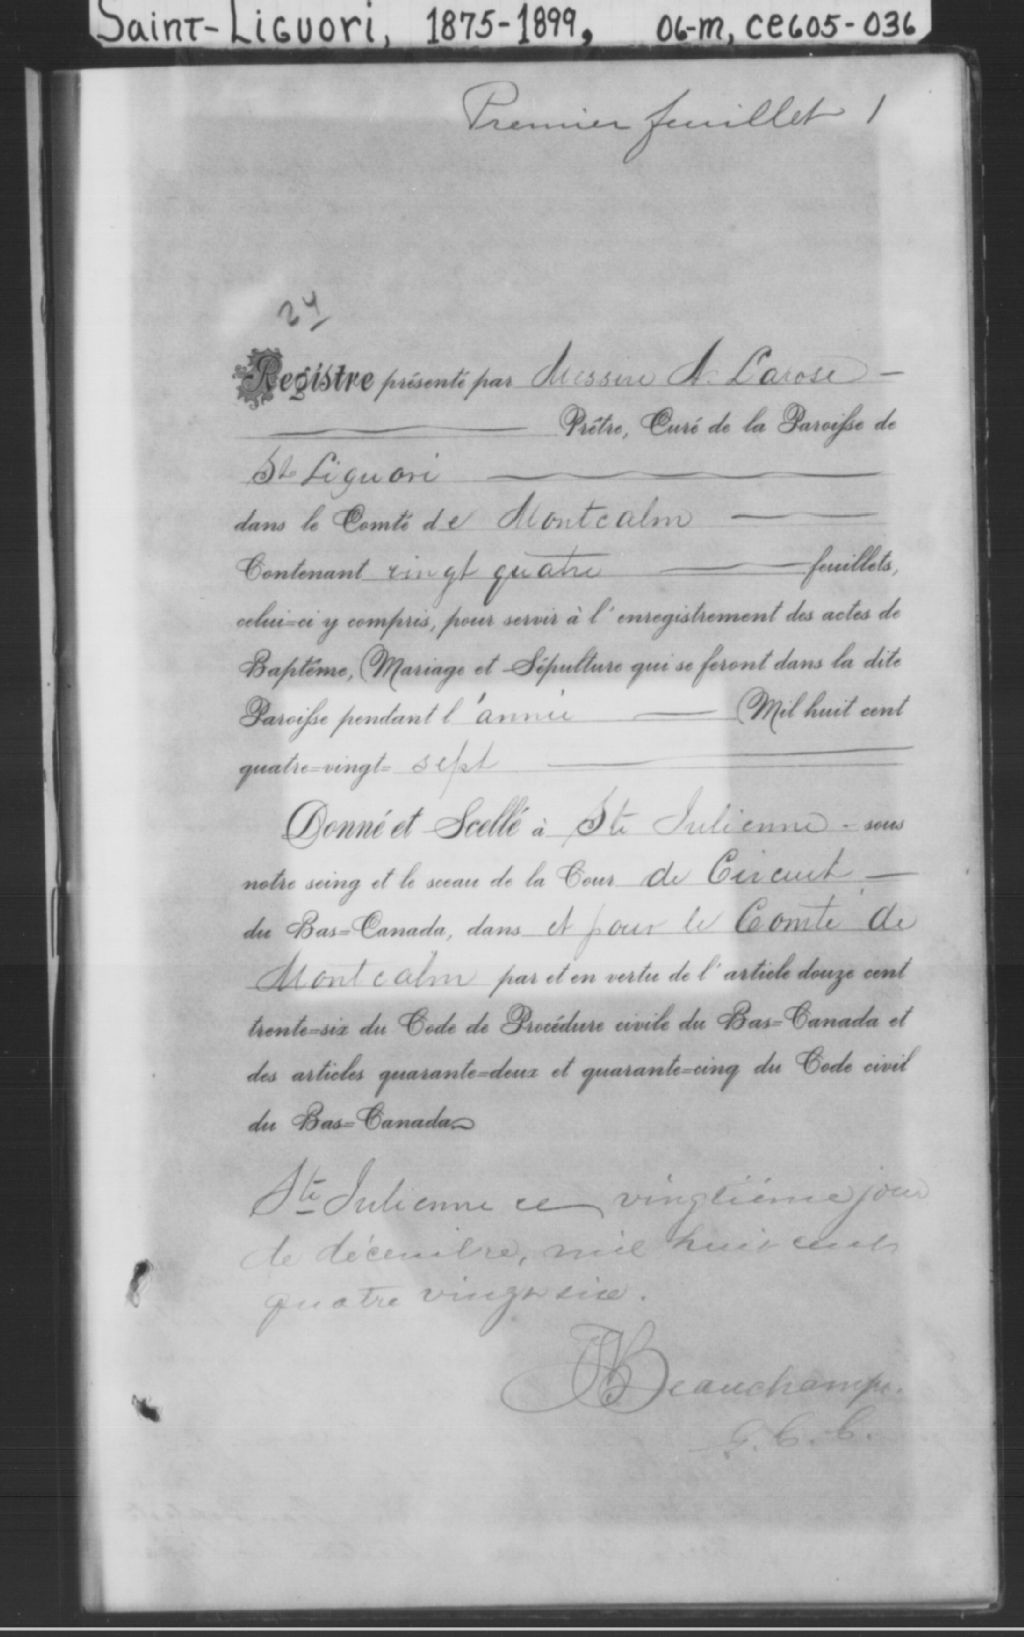 Saint-Liguori, 1875-1899, 06-m, ce605-036
Premier feuillet 1
24
Registre présenté par Messire A. Larose
Prêtre, Curé de la Paroisse de
St Liguori
dans le Comté de Montcalm
Contenant vingt quatre feuillets,
celui=ci y compris, pour servir à l'enregistrement des actes de
Baptême, Mariage et Sépulture qui se feront dans la dite
Paroisse pendant l'année Mil huit cent
quatre=vingt= sept
Donné et Scellé à Ste Julienne - sous
notre seing et le sceau de la Cour de Circuit
du Bas=Canada, dans et pour le Comté de
Montcalm par et en vertu de l'article douze cent
trente=six du Code de Procédure civile du Bas=Canada et
des articles quarante=deux et quarante=cinq du Code civil
du Bas=Canada
Ste Julienne ce vingtième jour
de décembre, mil huit cent
quatre vingt six.
Beauchamp.
G. C. C.